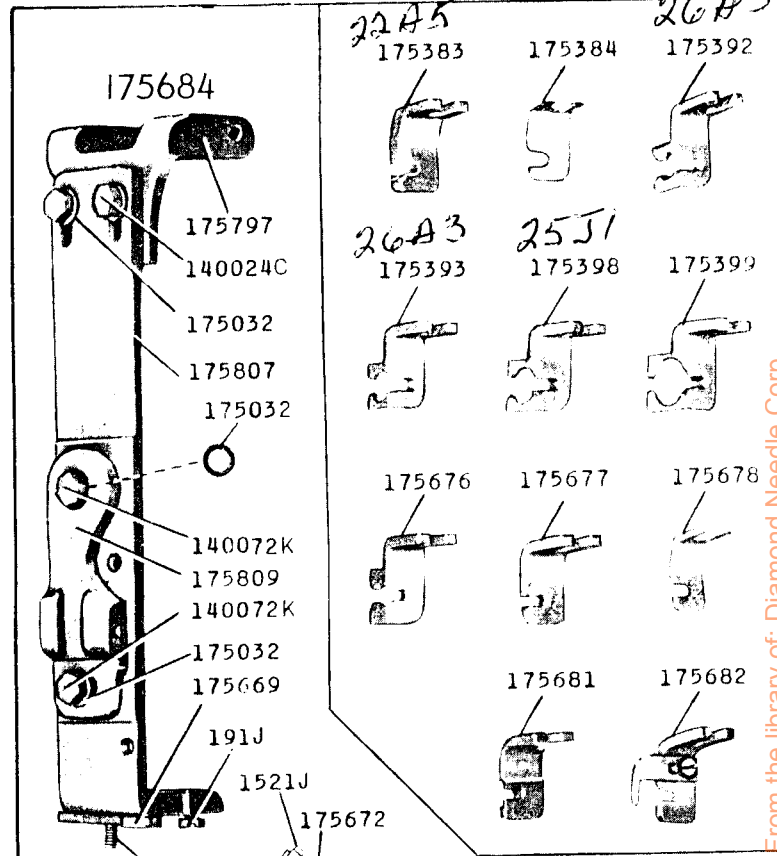 175684
175797
140024C
175032
175807
175032
140072K
175809
140072K
175032
175669
191J
1521J
175672
22A5
175383
175384
175392
26A3
175393
25J1
175398
175399
175676
175677
175678
175681
175682
From the library of: Diamond Needle Corp